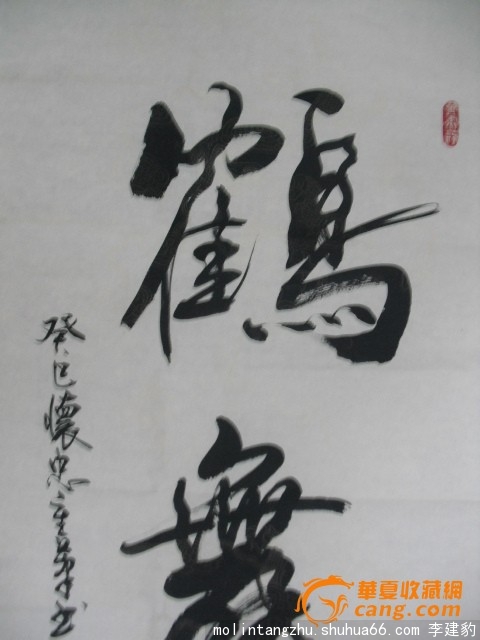 鶴舞
癸巳懷忠书
華夏收藏網
cang.com
molintangzhu.shuhua66.com 李建豹